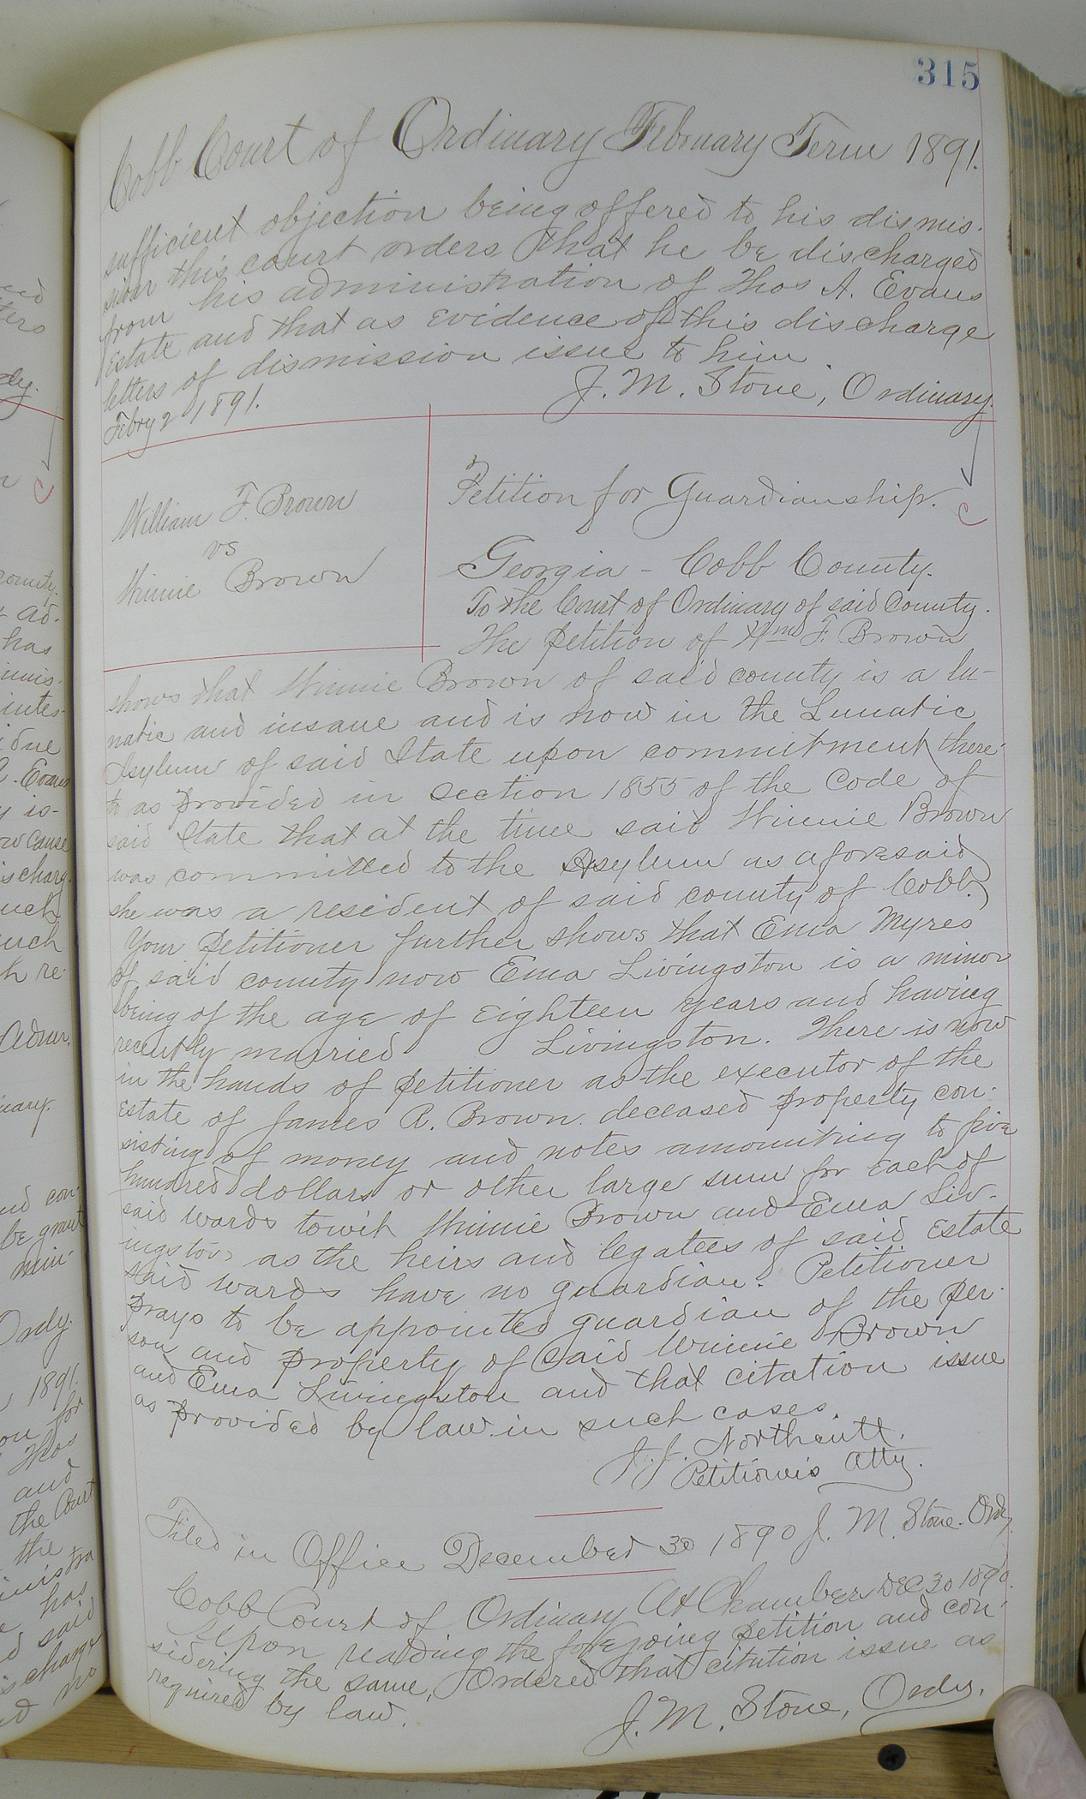 315
Cobb Court of Ordinary February Term 1891.
sufficient objection being offered to his dismis-
sion this court orders that he be discharged
from his administration of Thos A. Evans
Estate and that as evidence of this discharge
letters of dismission issue to him
J. M. Stone, Ordinary.
Febry 2 1891.
William F. Brown
vs
Winnie Brown
Petition for Guardianship.
Georgia - Cobb County.
To the Court of Ordinary of said County.
The Petition of Wm F. Brown
shows that Winnie Brown of said county is a lu-
natic and insane and is now in the Lunatic
Asylum of said State upon commitment there-
to as provided in section 1855 of the Code of
said State that at the time said Winnie Brown
was committed to the Asylum as aforesaid
she was a resident of said county of Cobb.
Your Petitioner further shows that Ema Myres
of said county now Ema Livingston is a minor
being of the age of eighteen years and having
recently married Livingston. There is now
in the hands of petitioner as the executor of the
estate of James R. Brown deceased property con-
sisting of money and notes amounting to five
hundred dollars or other large sum for each of
said wards towit Winnie Brown and Ema Liv-
ingston as the heirs and legatees of said Estate
said wards have no guardian. Petitioner
prays to be appointed guardian of the per-
son and property of said Winnie Brown
and Ema Livingston and that citation issue
as provided by law in such cases.
J. J. Northcutt.
Petitioner's Atty.
Filed in Office December 30 1890 J. M. Stone. Ordy.
Cobb Court of Ordinary At Chambers Dec 30 1890.
Upon reading the foregoing petition and con-
sidering the same, Ordered that citation issue as
required by law.
J. M. Stone, Ordy.